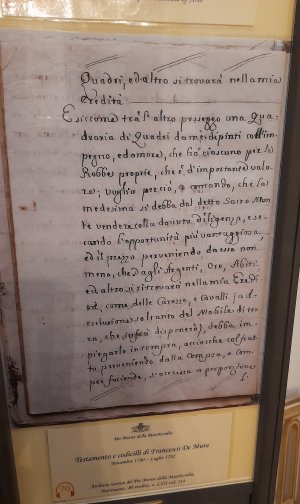 Quadri, ed altro si trovarà nella mia
Eredità
E siccome tra l'altro posseggo una Qua-
draria di Quadri da me dipinti coll'im-
pegno, ed amore, che hà ciascuno per le
Robbe proprie, che è d'importante valo-
re; voglio perciò, e comando, che la
medesima si debba dal detto Sacro Mon-
te vendere colla dovuta diligenza, e se-
condo l'opportunità più vantaggiosa
ed il prezzo perveniendo da essa non
meno, che dagli Argenti, Oro, Abiti
ed altro si trovarà nella mia Eredi-
tà, come delle Carozze, e Cavalli (ad
esclusione soltanto del Mobile di ter-
za, che infra disponerò), debba im-
piegarlo in compra, acciocche col frut-
to, perveniendo dalla compra, o com-
pre faciende, si accresca a proporzione
Pio Monte della Misericordia
Testamento e codicilli di Francesco De Mura
Novembre 1780 - Luglio 1782
Archivio Storico del Pio Monte della Misericordia
Patrimonio, 90 eredità, n. LXII vol. 214